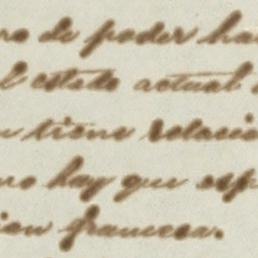 ro de poder ha
l estado actual
n tiene relacio
no hay que esp
ion francesa.